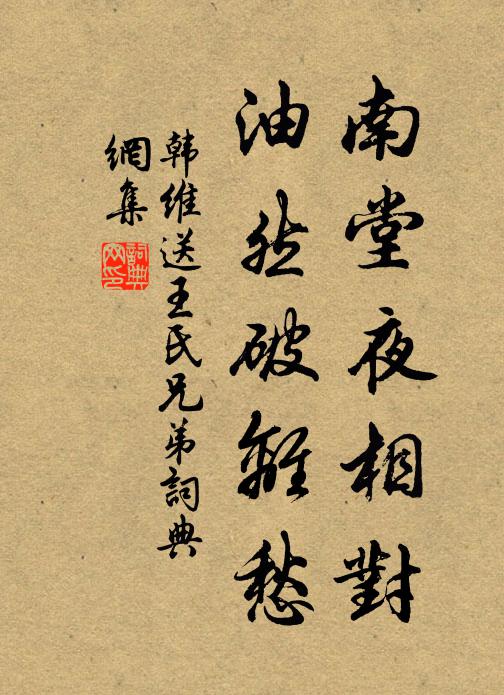 南堂夜相對
油然破離愁
韩维送王氏兄弟詞典
網集
詞典網印